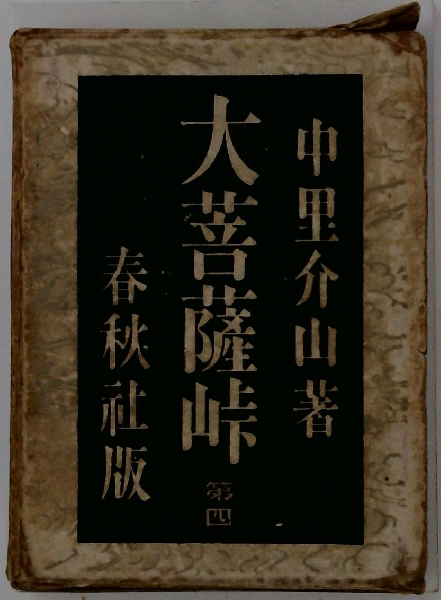 中里介山著
大菩薩峠
第四
春秋社版